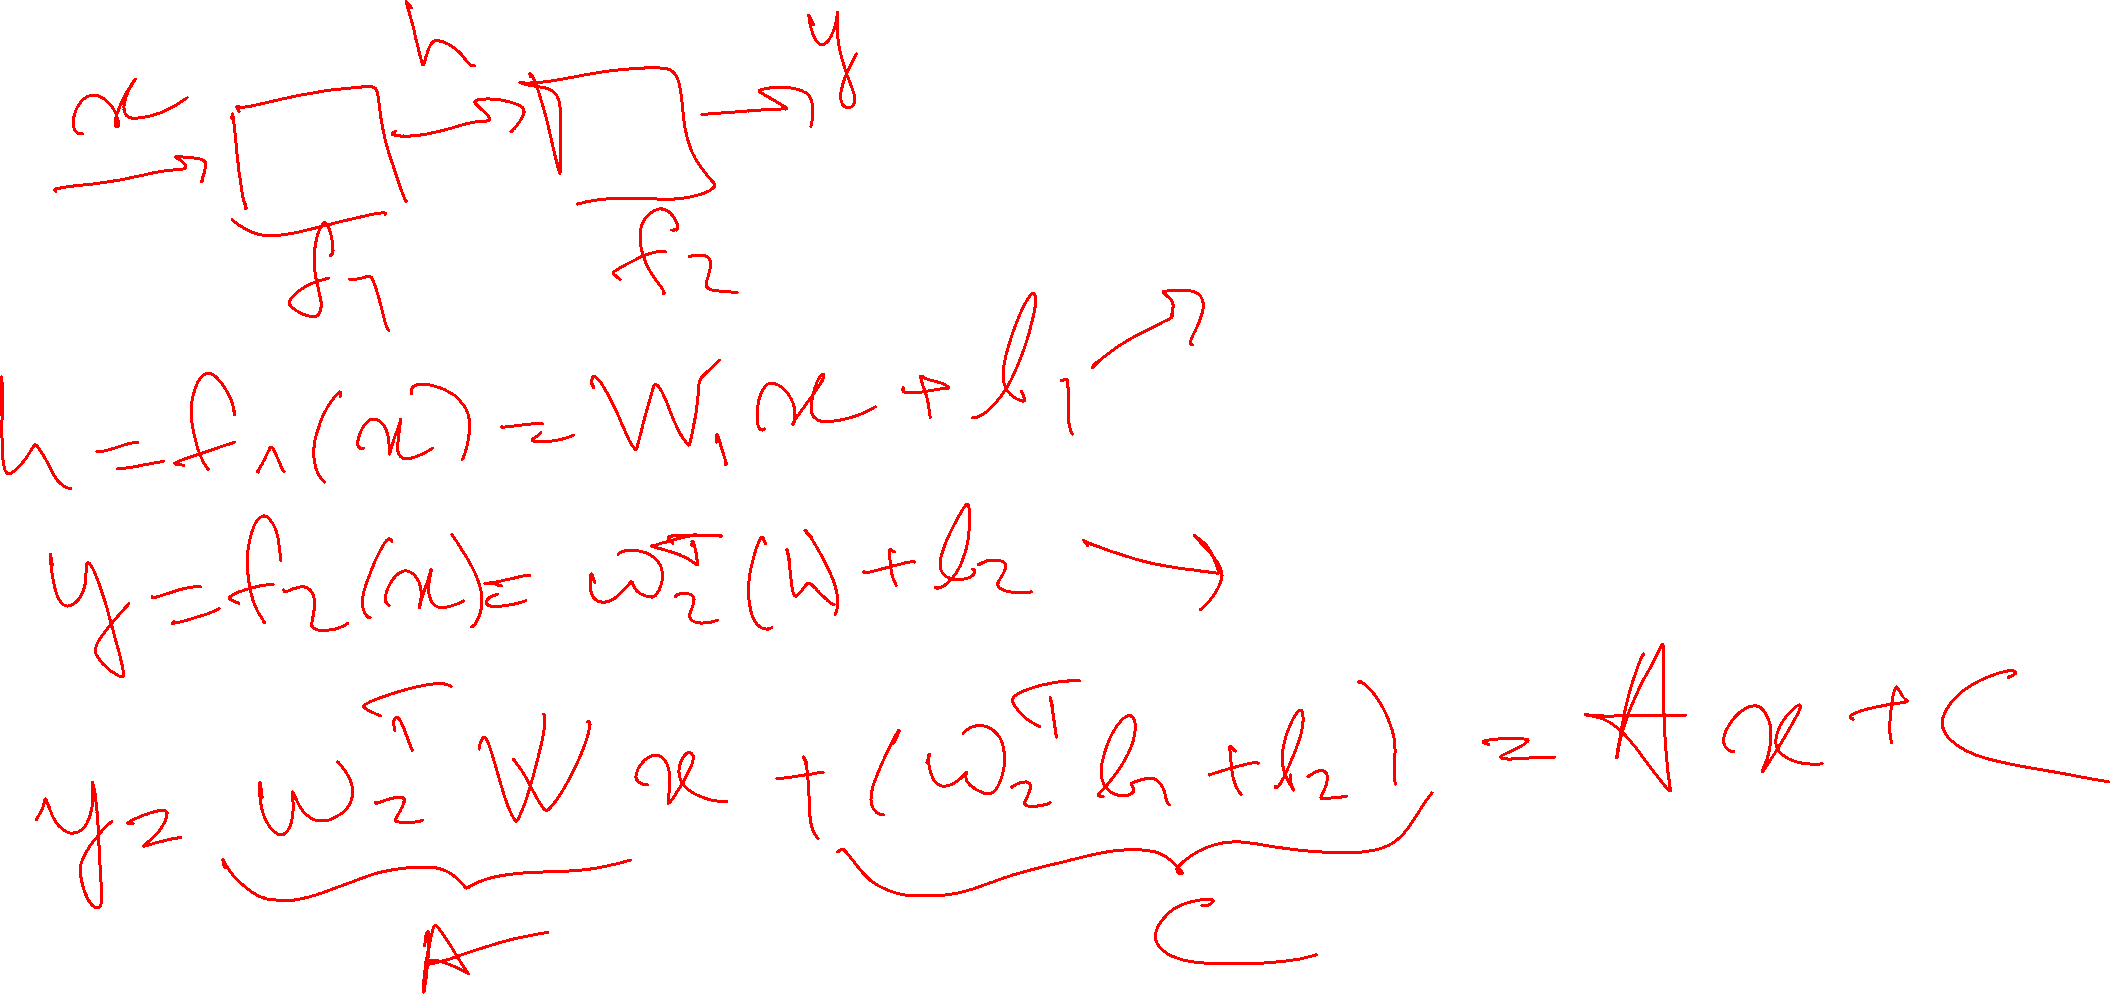 x h y
f1 f2
h = f1(x) = W1 x + b1
y = f2(x) = w2^T (h) + b2 →
y = w2^T W x + (w2^T b1 + b2) = A x + C
A C